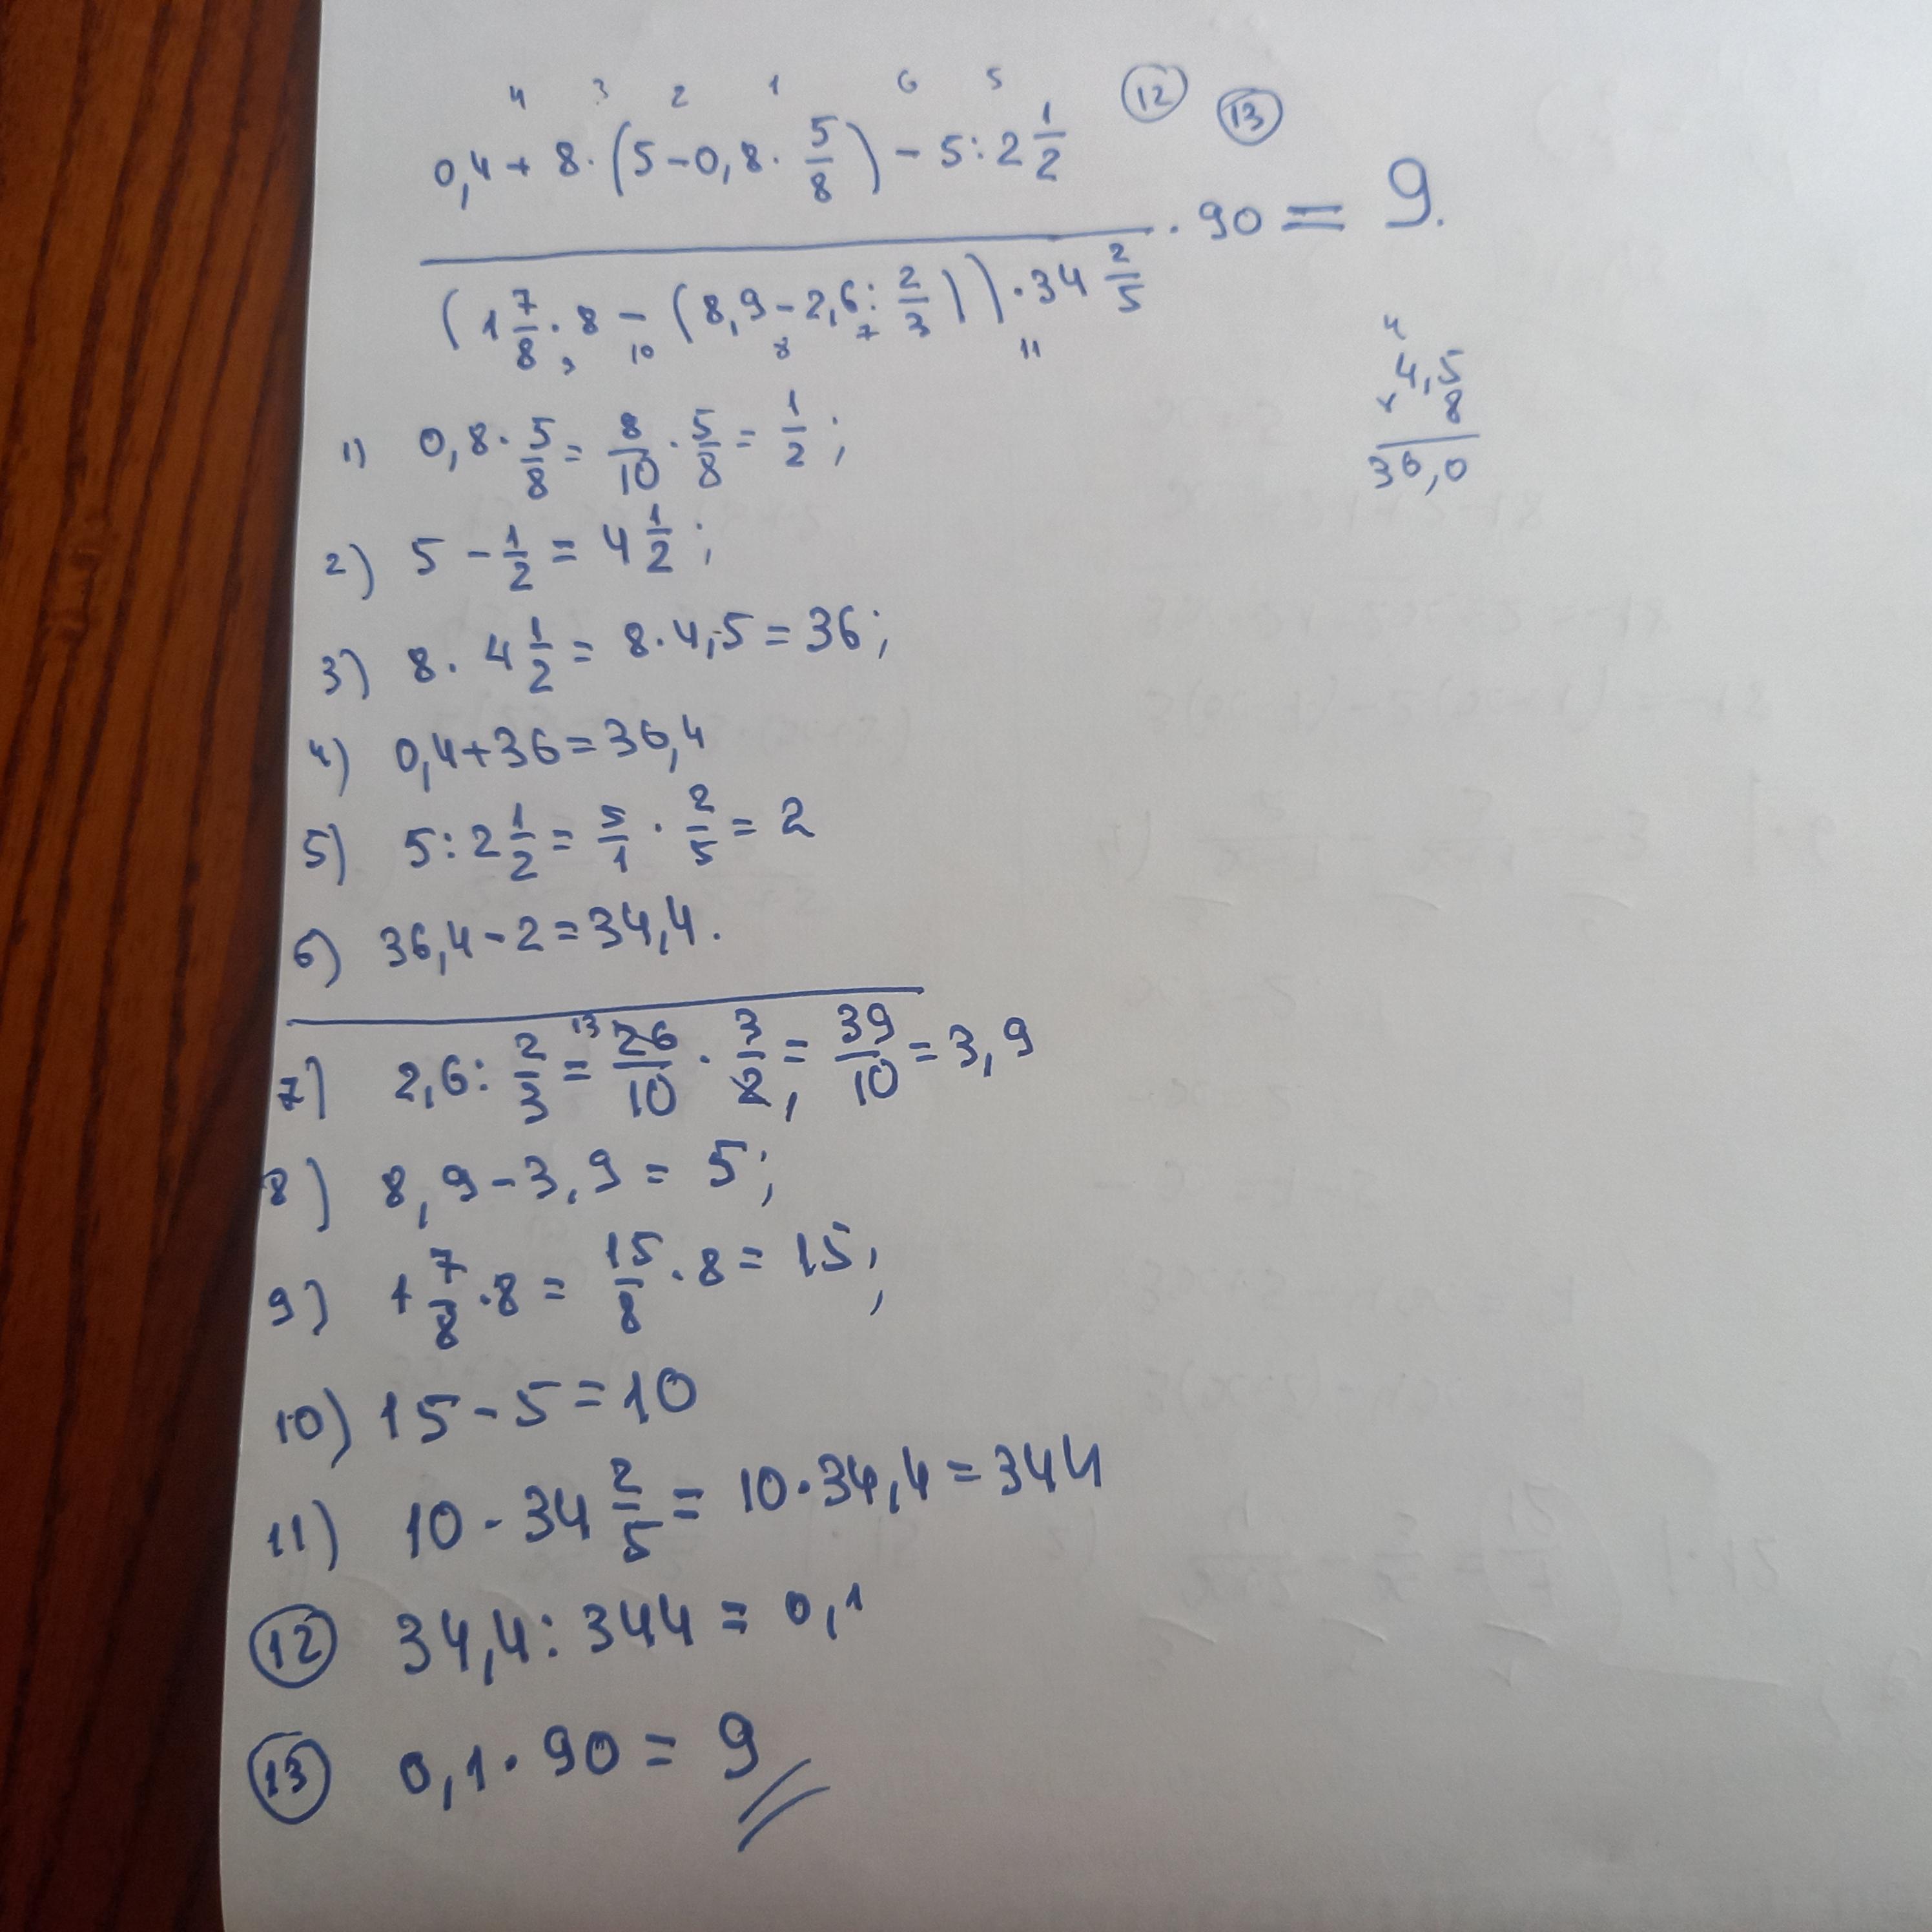 4 3 2 1 6 5 12 13
0,4 + 8 · (5 - 0,8 · 5/8) - 5 : 2 1/2
· 90 = 9.
(1 7/8 · 8 - (8,9 - 2,6 : 2/3)) · 34 2/5
9 10 8 7 11
4
4,5
× 8
36,0
1) 0,8 · 5/8 = 8/10 · 5/8 = 1/2 ;
2) 5 - 1/2 = 4 1/2 ;
3) 8 · 4 1/2 = 8 · 4,5 = 36 ;
4) 0,4 + 36 = 36,4
5) 5 : 2 1/2 = 5/1 · 2/5 = 2
6) 36,4 - 2 = 34,4 .
7) 2,6 : 2/3 = 13 26/10 · 3/2 1 = 39/10 = 3,9
8) 8,9 - 3,9 = 5 ;
9) 1 7/8 · 8 = 15/8 · 8 = 15 ;
10) 15 - 5 = 10
11) 10 · 34 2/5 = 10 · 34,4 = 344
12 34,4 : 344 = 0,1
13 0,1 · 90 = 9